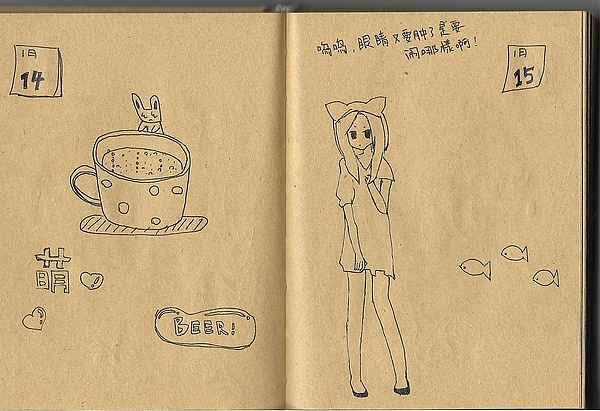 1月
14
萌
BEER!
嗚嗚，眼睛又要肿了是要
闹哪樣啊！
1月
15